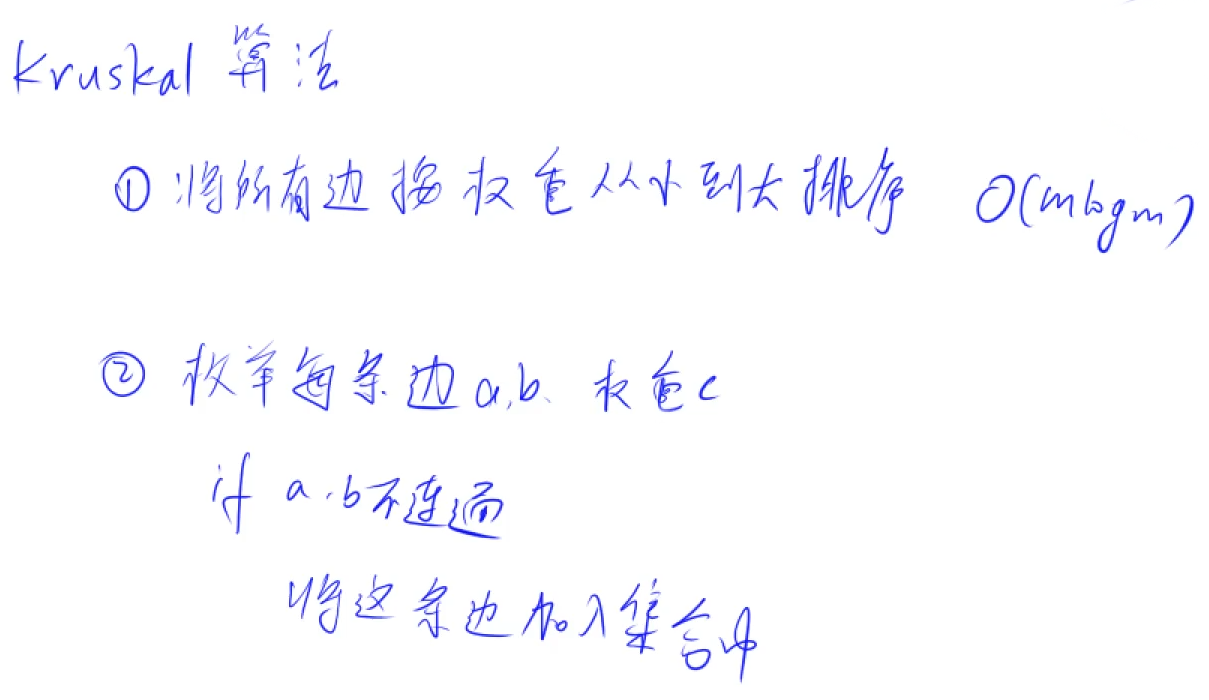 Kruskal 算法
① 将所有边按权重从小到大排序 O(mlogm)
② 枚举每条边a,b、权重c
if a,b不连通
将这条边加入集合中